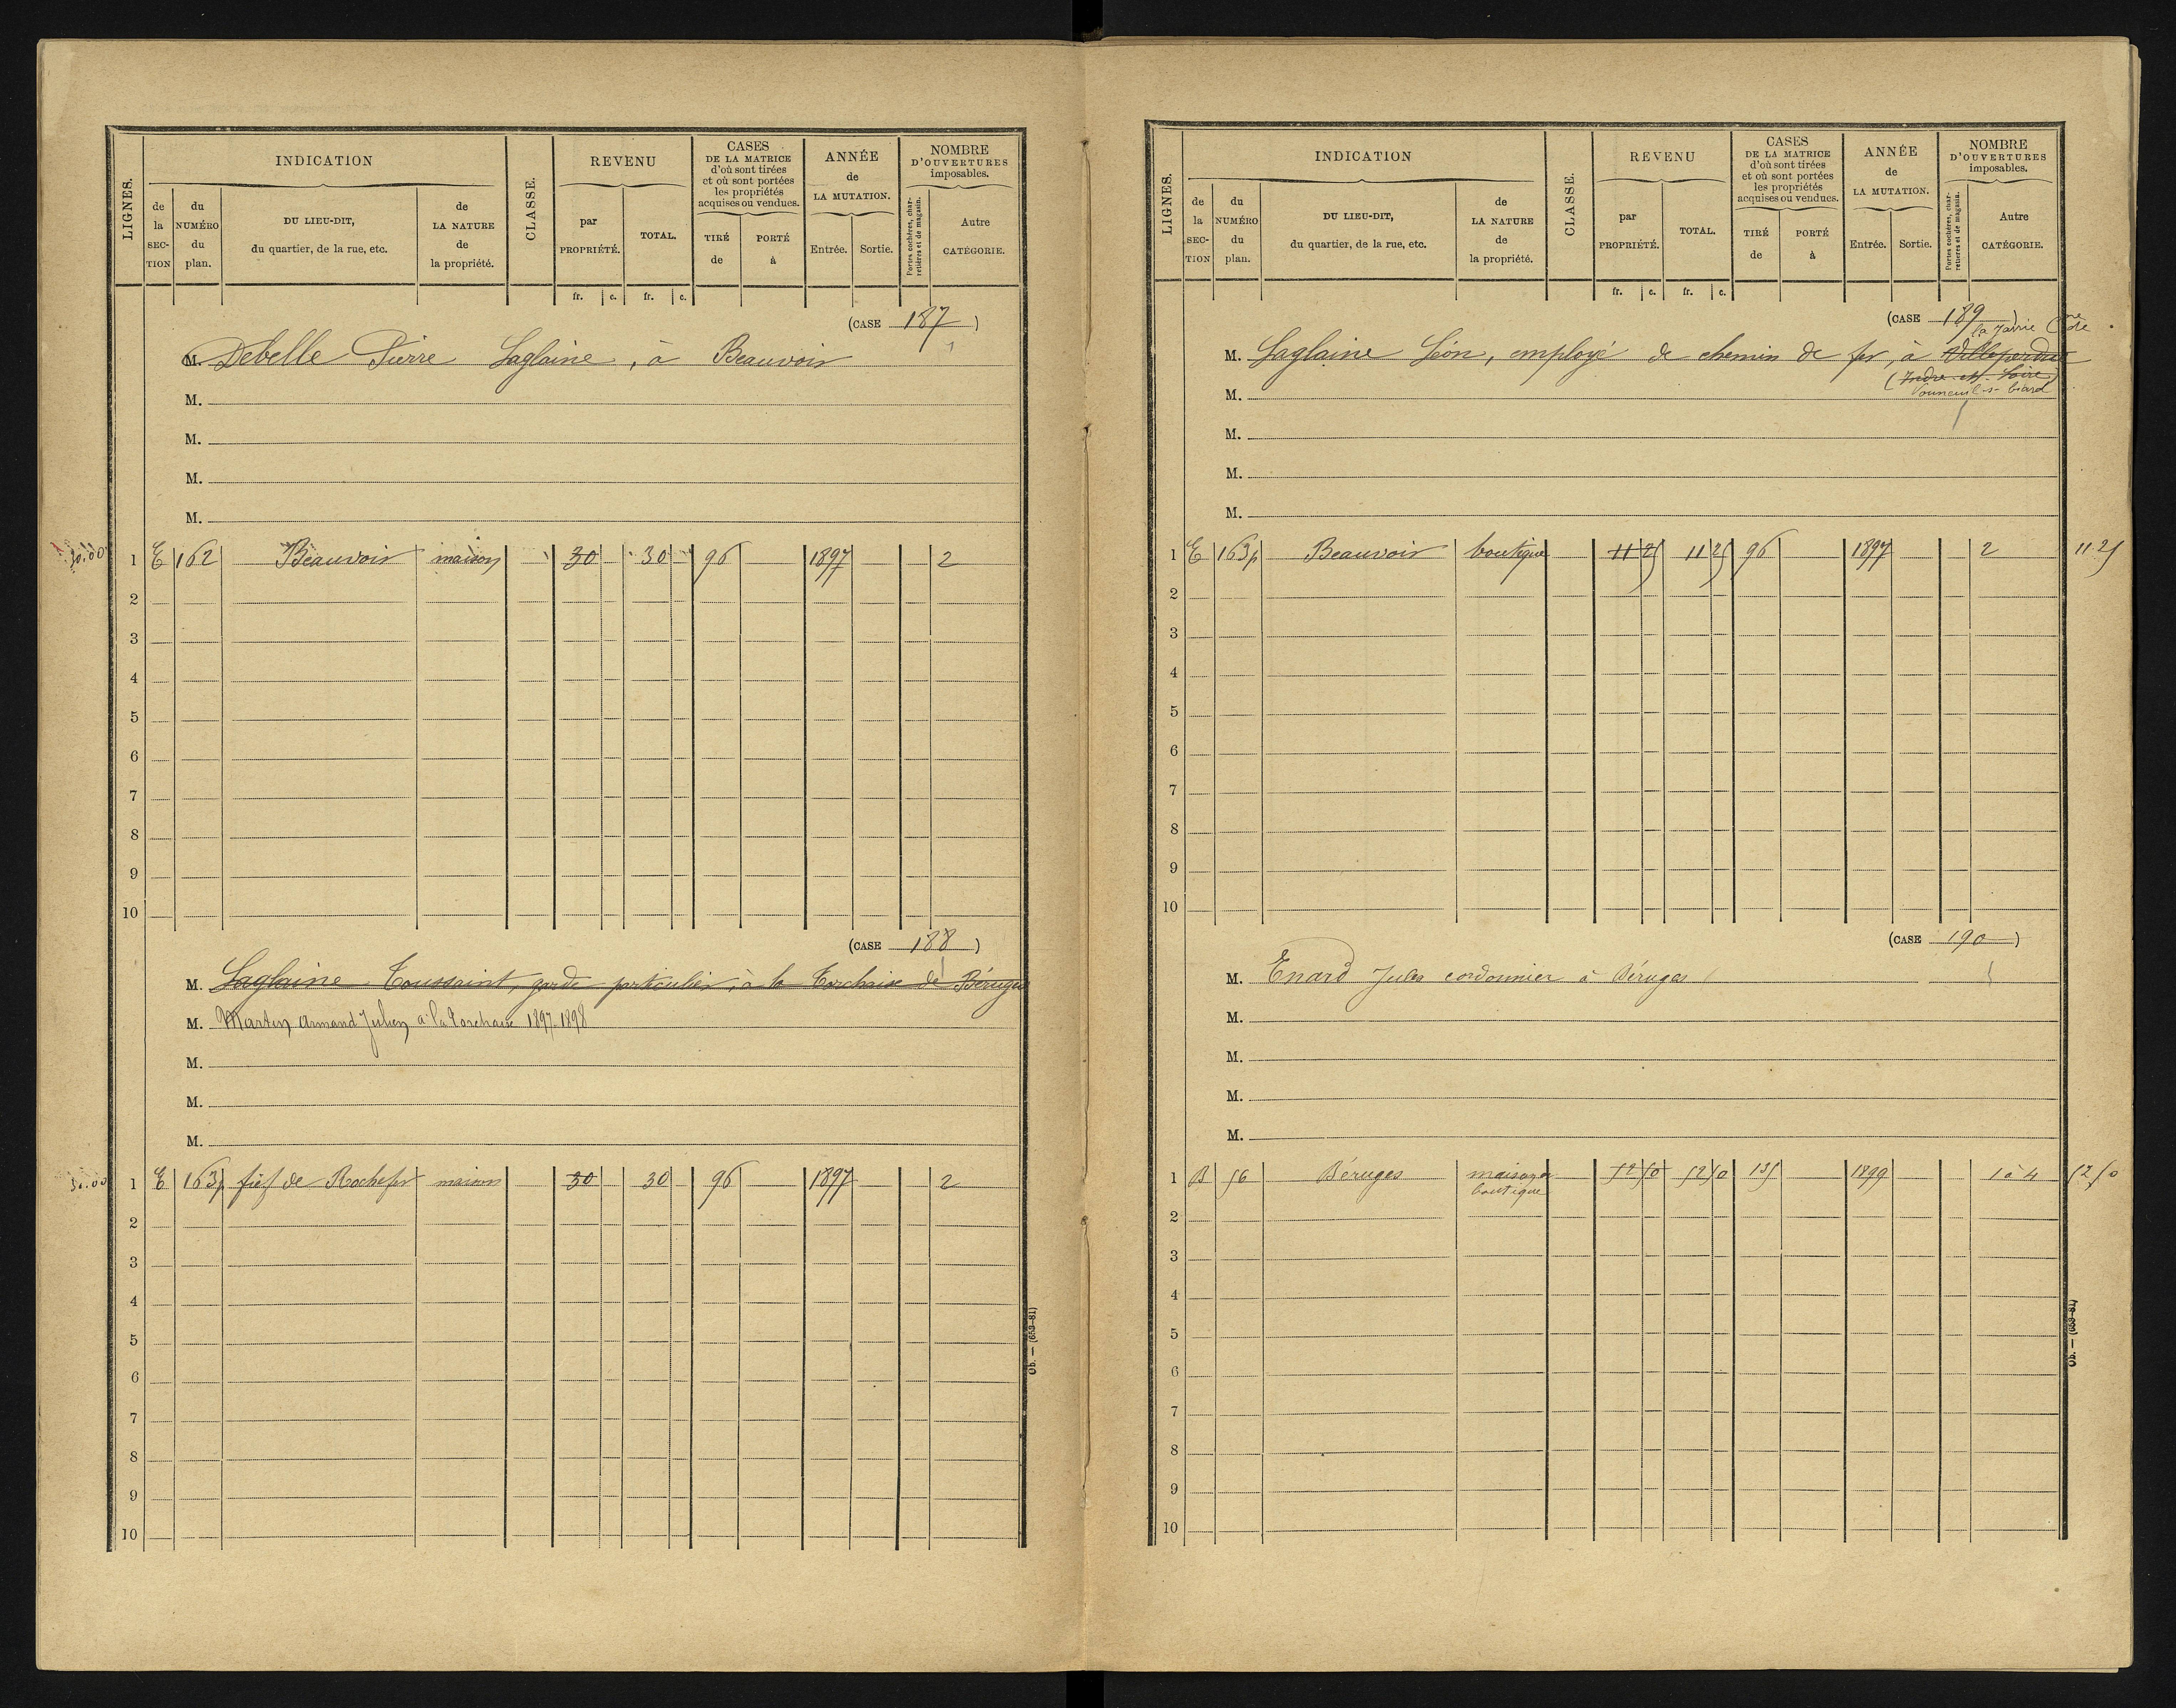 LIGNES.
INDICATION
CLASSE.
REVENU
CASES
DE LA MATRICE
d'où sont tirées
et où sont portées
les propriétés
acquises ou vendues.
ANNÉE
de
LA MUTATION.
NOMBRE
D'OUVERTURES
imposables.
de la SECTION
du NUMÉRO du plan.
DU LIEU-DIT,
du quartier, de la rue, etc.
de LA NATURE de la propriété.
par PROPRIÉTÉ.
TOTAL.
TIRÉ de
PORTÉ à
Entrée.
Sortie.
Portes cochères, charretières et de magasin.
Autre CATÉGORIE.
fr. c. fr. c.
(CASE 187)
M. Debelle Pierre Laglaine, à Beauvoir
M.
M.
M.
M.
30.00
1 E 162 Beauvoir maison 30 30 96 1897 2
2
3
4
5
6
7
8
9
10
(CASE 188)
M. Laglaine Toussaint, garde particulier, à la Torchaise de Béruges
M. Martin Armand Julien à la Torchaise 1897-1898
M.
M.
M.
30.00
1 E 163p fief de Rochefort maison 30 30 96 1897 2
2
3
4
5
6
7
8
9
10
Ob. — (653-81)
LIGNES.
INDICATION
CLASSE.
REVENU
CASES
DE LA MATRICE
d'où sont tirées
et où sont portées
les propriétés
acquises ou vendues.
ANNÉE
de
LA MUTATION.
NOMBRE
D'OUVERTURES
imposables.
de la SECTION
du NUMÉRO du plan.
DU LIEU-DIT,
du quartier, de la rue, etc.
de LA NATURE de la propriété.
par PROPRIÉTÉ.
TOTAL.
TIRÉ de
PORTÉ à
Entrée.
Sortie.
Portes cochères, charretières et de magasin.
Autre CATÉGORIE.
fr. c. fr. c.
(CASE 189)
la Jarrie
M. Laglaine Léon, employé de chemin de fer, à Villeperdue
(Indre-et-Loire)
Vouneuil-s-biard
M.
M.
M.
M.
1 E 163p Beauvoir boutique 11 25 11 25 96 1897 2 11 25
2
3
4
5
6
7
8
9
10
(CASE 190)
M. Enard Jules cordonnier à Béruges
M.
M.
M.
M.
1 B 56 Béruges maison et 52 50 52 50 135 1899 1 à 4 52 50
boutique
2
3
4
5
6
7
8
9
10
Ob. — (653-81)